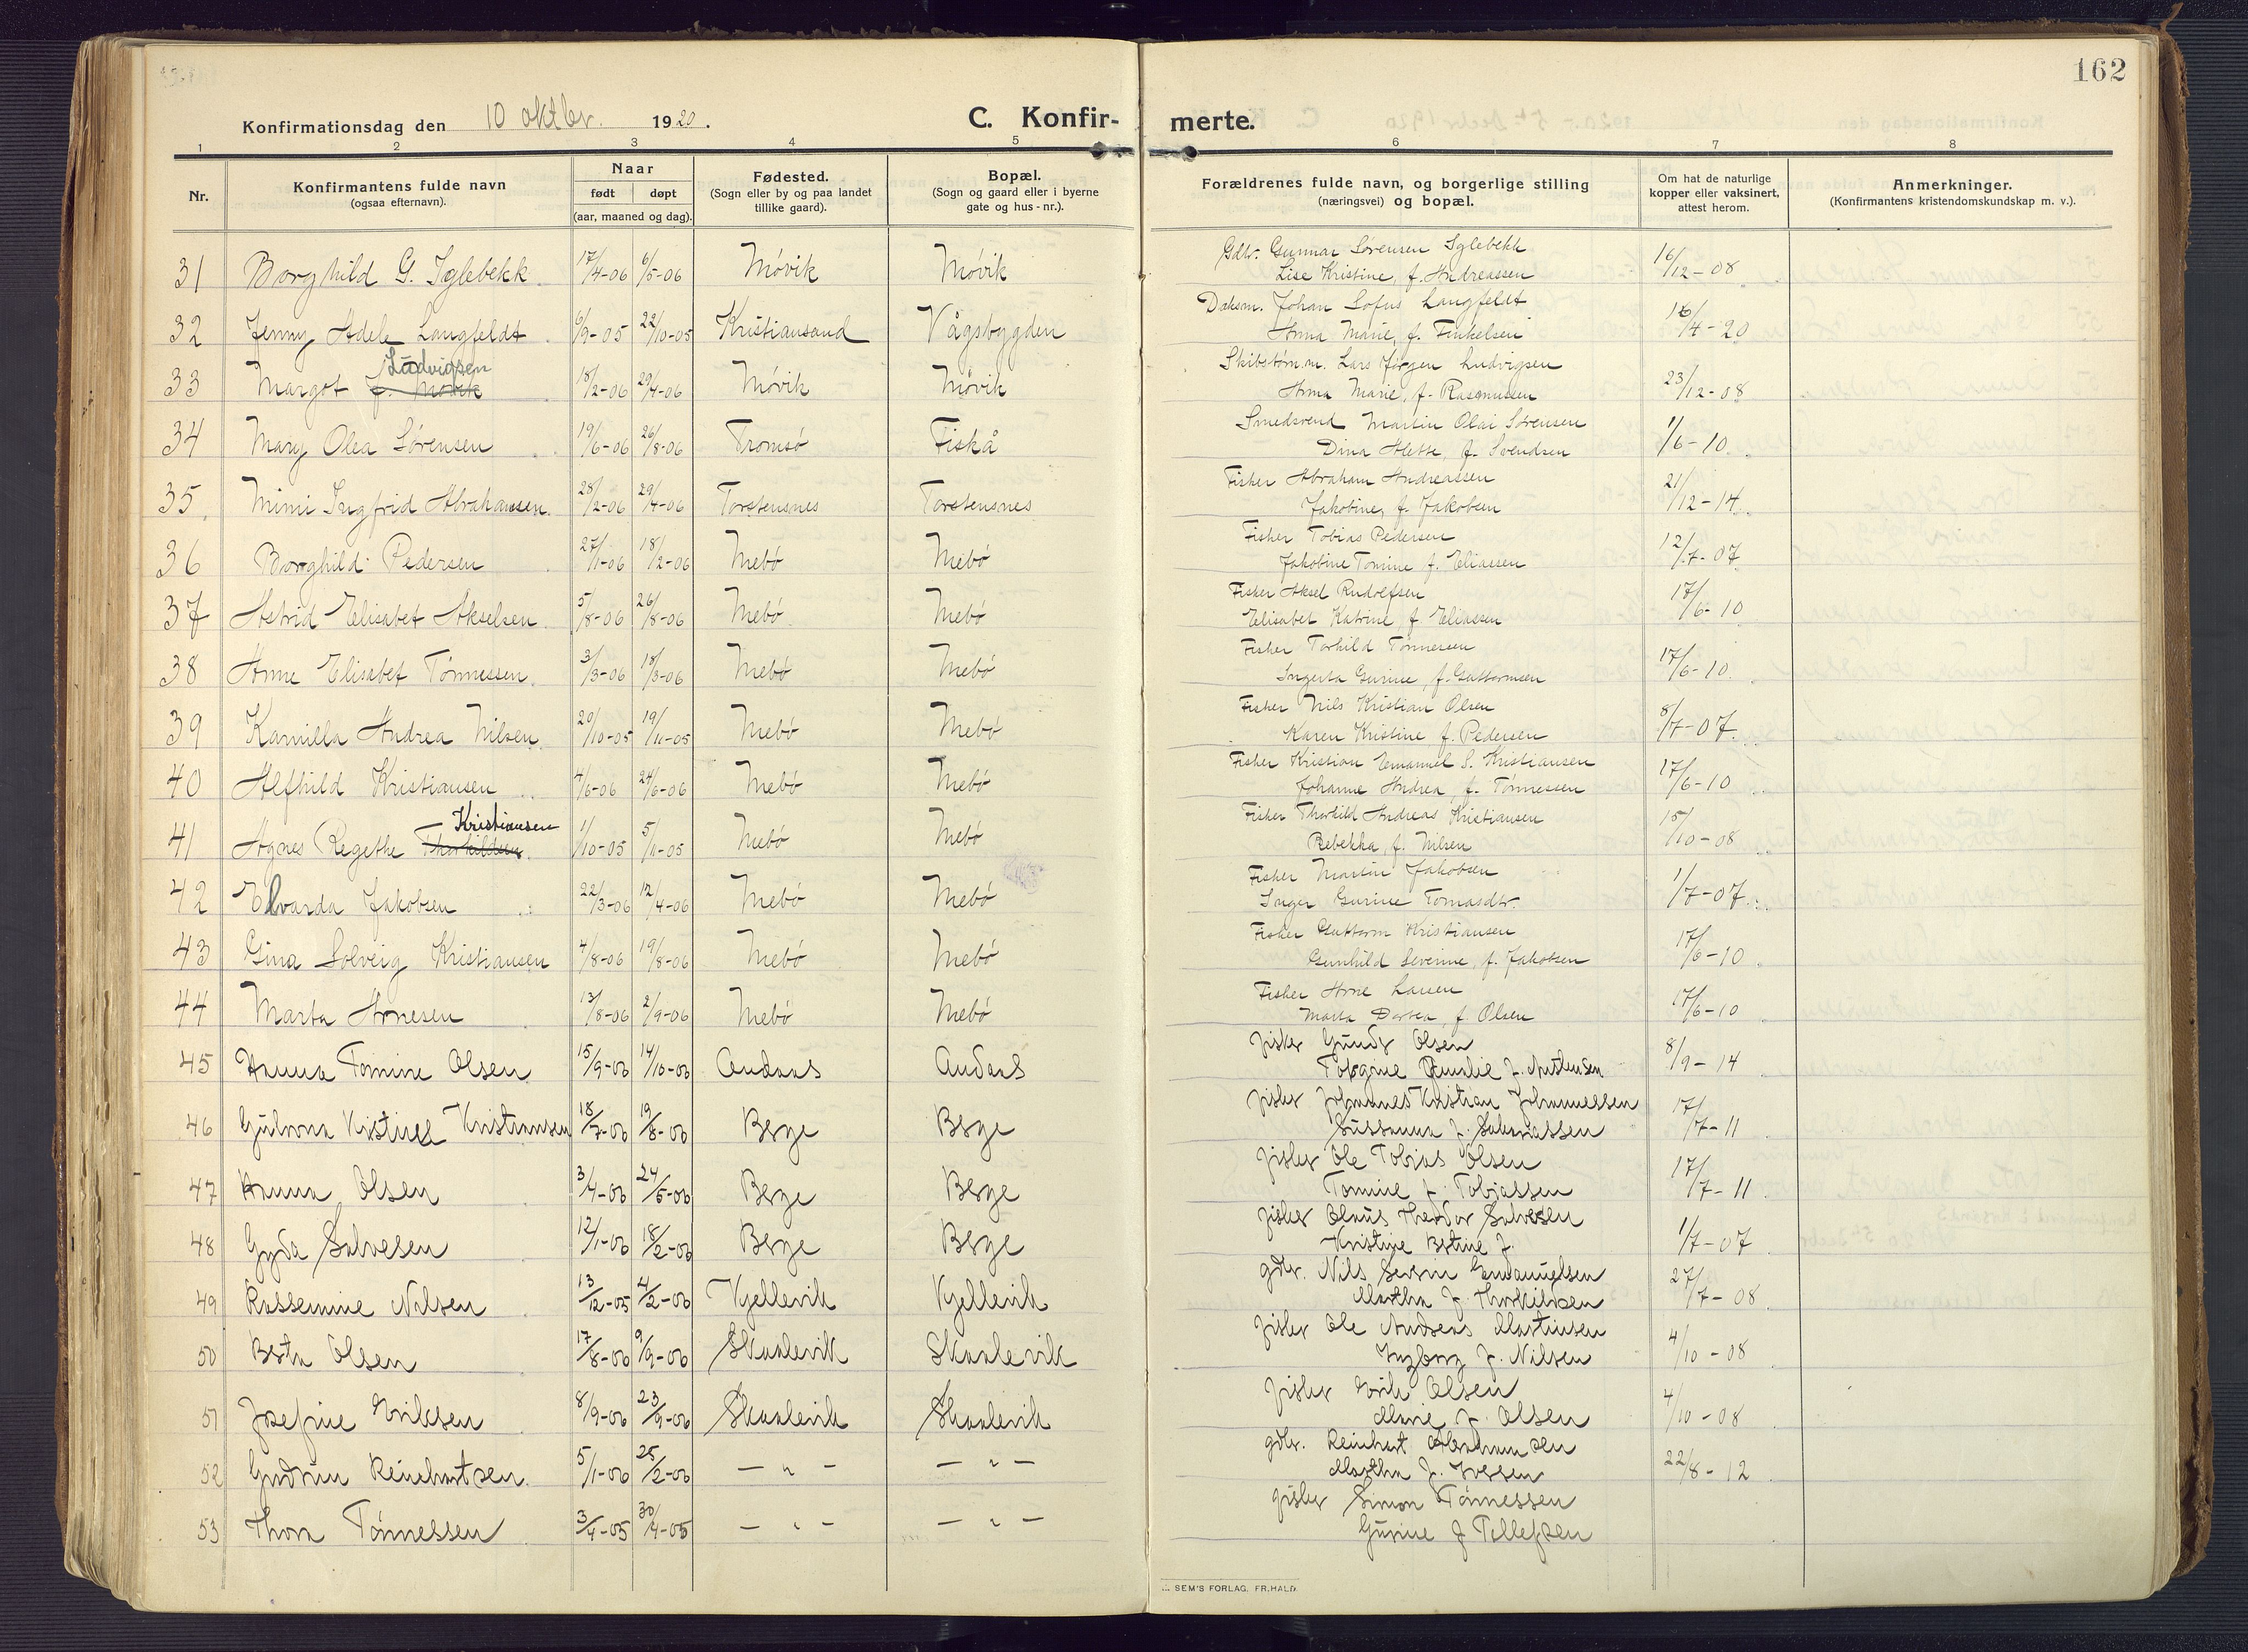 162
Konfirmationsdag den 10 oktbr. 1920.
C. Konfir-merte.
1 2 3 4 5 6 7 8
Nr.
Konfirmantens fulde navn
(ogsaa efternavn).
Naar
født døpt
(aar, maaned og dag).
Fødested.
(Sogn eller by og paa landet
tillike gaard).
Bopæl.
(Sogn og gaard eller i byerne
gate og hus-nr.).
Forældrenes fulde navn, og borgerlige stilling
(næringsvei) og bopæl.
Om hat de naturlige
kopper eller vaksinert,
attest herom.
Anmerkninger.
(Konfirmantens kristendomskundskap m. v.).
31 Borghild G. Iglebekk 17/4-06 6/5-06 Móvik Móvik Gdbr. Gunnar Sørensen Iglebekk 16/12-08
Lise Kristine, f. Andreassen
32 Jenny Adele Langfeldt 6/9-05 22/10-05 Kristiansand Vågsbygden Daksm. Johan Lofus Langfeldt 16/4-20
Anna Marie, f. Finkelsen
Ludvigsen
33 Margot f. Móvik 18/2-06 29/4-06 Móvik Móvik Skibstøm.m. Lars Jørgen Ludvigsen 23/12-08
Anna Marie, f. Rasmussen
34 Mary Olea Sørensen 19/6-06 26/8-06 Tromsó Fiskå Smedsvend Martin Olai Sørensen 1/6-10
Dina Alette, f. Svendsen
35 Mimi Ingfrid Abrahamsen 28/2-06 29/4-06 Torstensnes Torstensnes Fisker Abraham Andreassen 21/12-14
Jakobine, f. Jakobsen
36 Borghild Pedersen 27/1-06 18/2-06 Mebó Mebó Fisher Tobias Pedersen 12/7-07
Jakobine Tomine f. Eliassen
37 Astrid Elisabet Akselsen 5/8-06 26/8-06 Mebó Mebó Fisker Aksel Rudolfsen 17/6-10
Elisabet Katrine, f. Eliassen
38 Anne Elisabet Tønnessen 3/3-06 18/3-06 Mebó Mebó Fisher Torkild Tønnesen 17/6-10
Ingerta Gurine, f. Guttormsen
39 Kamilla Andrea Nilsen 20/10-05 19/11-05 Mebó Mebó Fisher Nils Kristian Olsen 8/7-07
Karen Kristine f. Pedersen
40 Alfhild Kristiansen 4/6-06 24/6-06 Mebó Mebó Fisher Kristian Emanuel S. Kristiansen 17/6-10
Johanne Andrea, f. Tønnessen
Kristiansen
41 Agnes Regethe Thorkildsen 1/10-05 5/11-05 Mebó Mebó Fisher Thorkild Andreas Kristiansen 15/10-08
Rebekka, f. Nilsen
42 Elvarda Jakobsen 22/3-06 12/4-06 Mebó Mebó Fisher Martin Jakobsen 1/7-07
Inger Gurine Tomasdtr.
43 Gina Solveig Kristiansen 4/8-06 19/8-06 Mebó Mebó Fisker Guttorm Kristiansen 17/6-10
Gunhild Severine, f. Jakobsen
44 Marta Arnesen 13/8-06 2/9-06 Mebó Mebó Fisker Arne Larsen 17/6-10
Marta Dortea, f. Olsen
45 Hanna Tomine Olsen 15/9-06 14/10-06 Andaas Andaas fisker Gunder Olsen 8/9-14
Torgine Amalie f. Austensen
46 Gulvina Kristine Kristiansen 18/7-06 19/8-06 Berge Berge fisker Johannes Kristian Johannessen 17/7-11
Sussanna f. Salveassen
47 Hanna Olsen 3/4-06 24/5-06 Berge Berge fisker Ole Tobias Olsen 17/7-11
Tomine f. Tobiassen
48 Gyda Salvesen 12/1-06 18/2-06 Berge Berge fisker Olaus Theodor Salvesen 1/7-07
Kristine Bertine f.
49 Rassemine Nilsen 13/12-05 4/2-06 Kjellevik Kjellevik gdbr. Nils Severin Emanuelsen 27/7-08
Martha f. Thorkildsen
50 Berta Olsen 17/8-06 9/9-06 Skaalevik Skaalevik fisker Ole Andreas Martinsen 4/10-08
Ingborg f. Nilsen
51 Josefine Eriksen 8/9-06 23/9-06 Skaalevik Skaalevik fisker Erik Olsen 4/10-08
Marie f. Olsen
52 Gudrun Reinhartsen 5/1-06 25/2-06 — " — — " — gdbr. Reinhart Abrahamsen 22/8-12
Martha f. Iversen
53 Thora Tønnessen 3/4-05 30/4-05 — " — — " — fisker Simon Tønnessen
Gurine f Tellefsen
SEM'S FORLAG, FR.HALD.